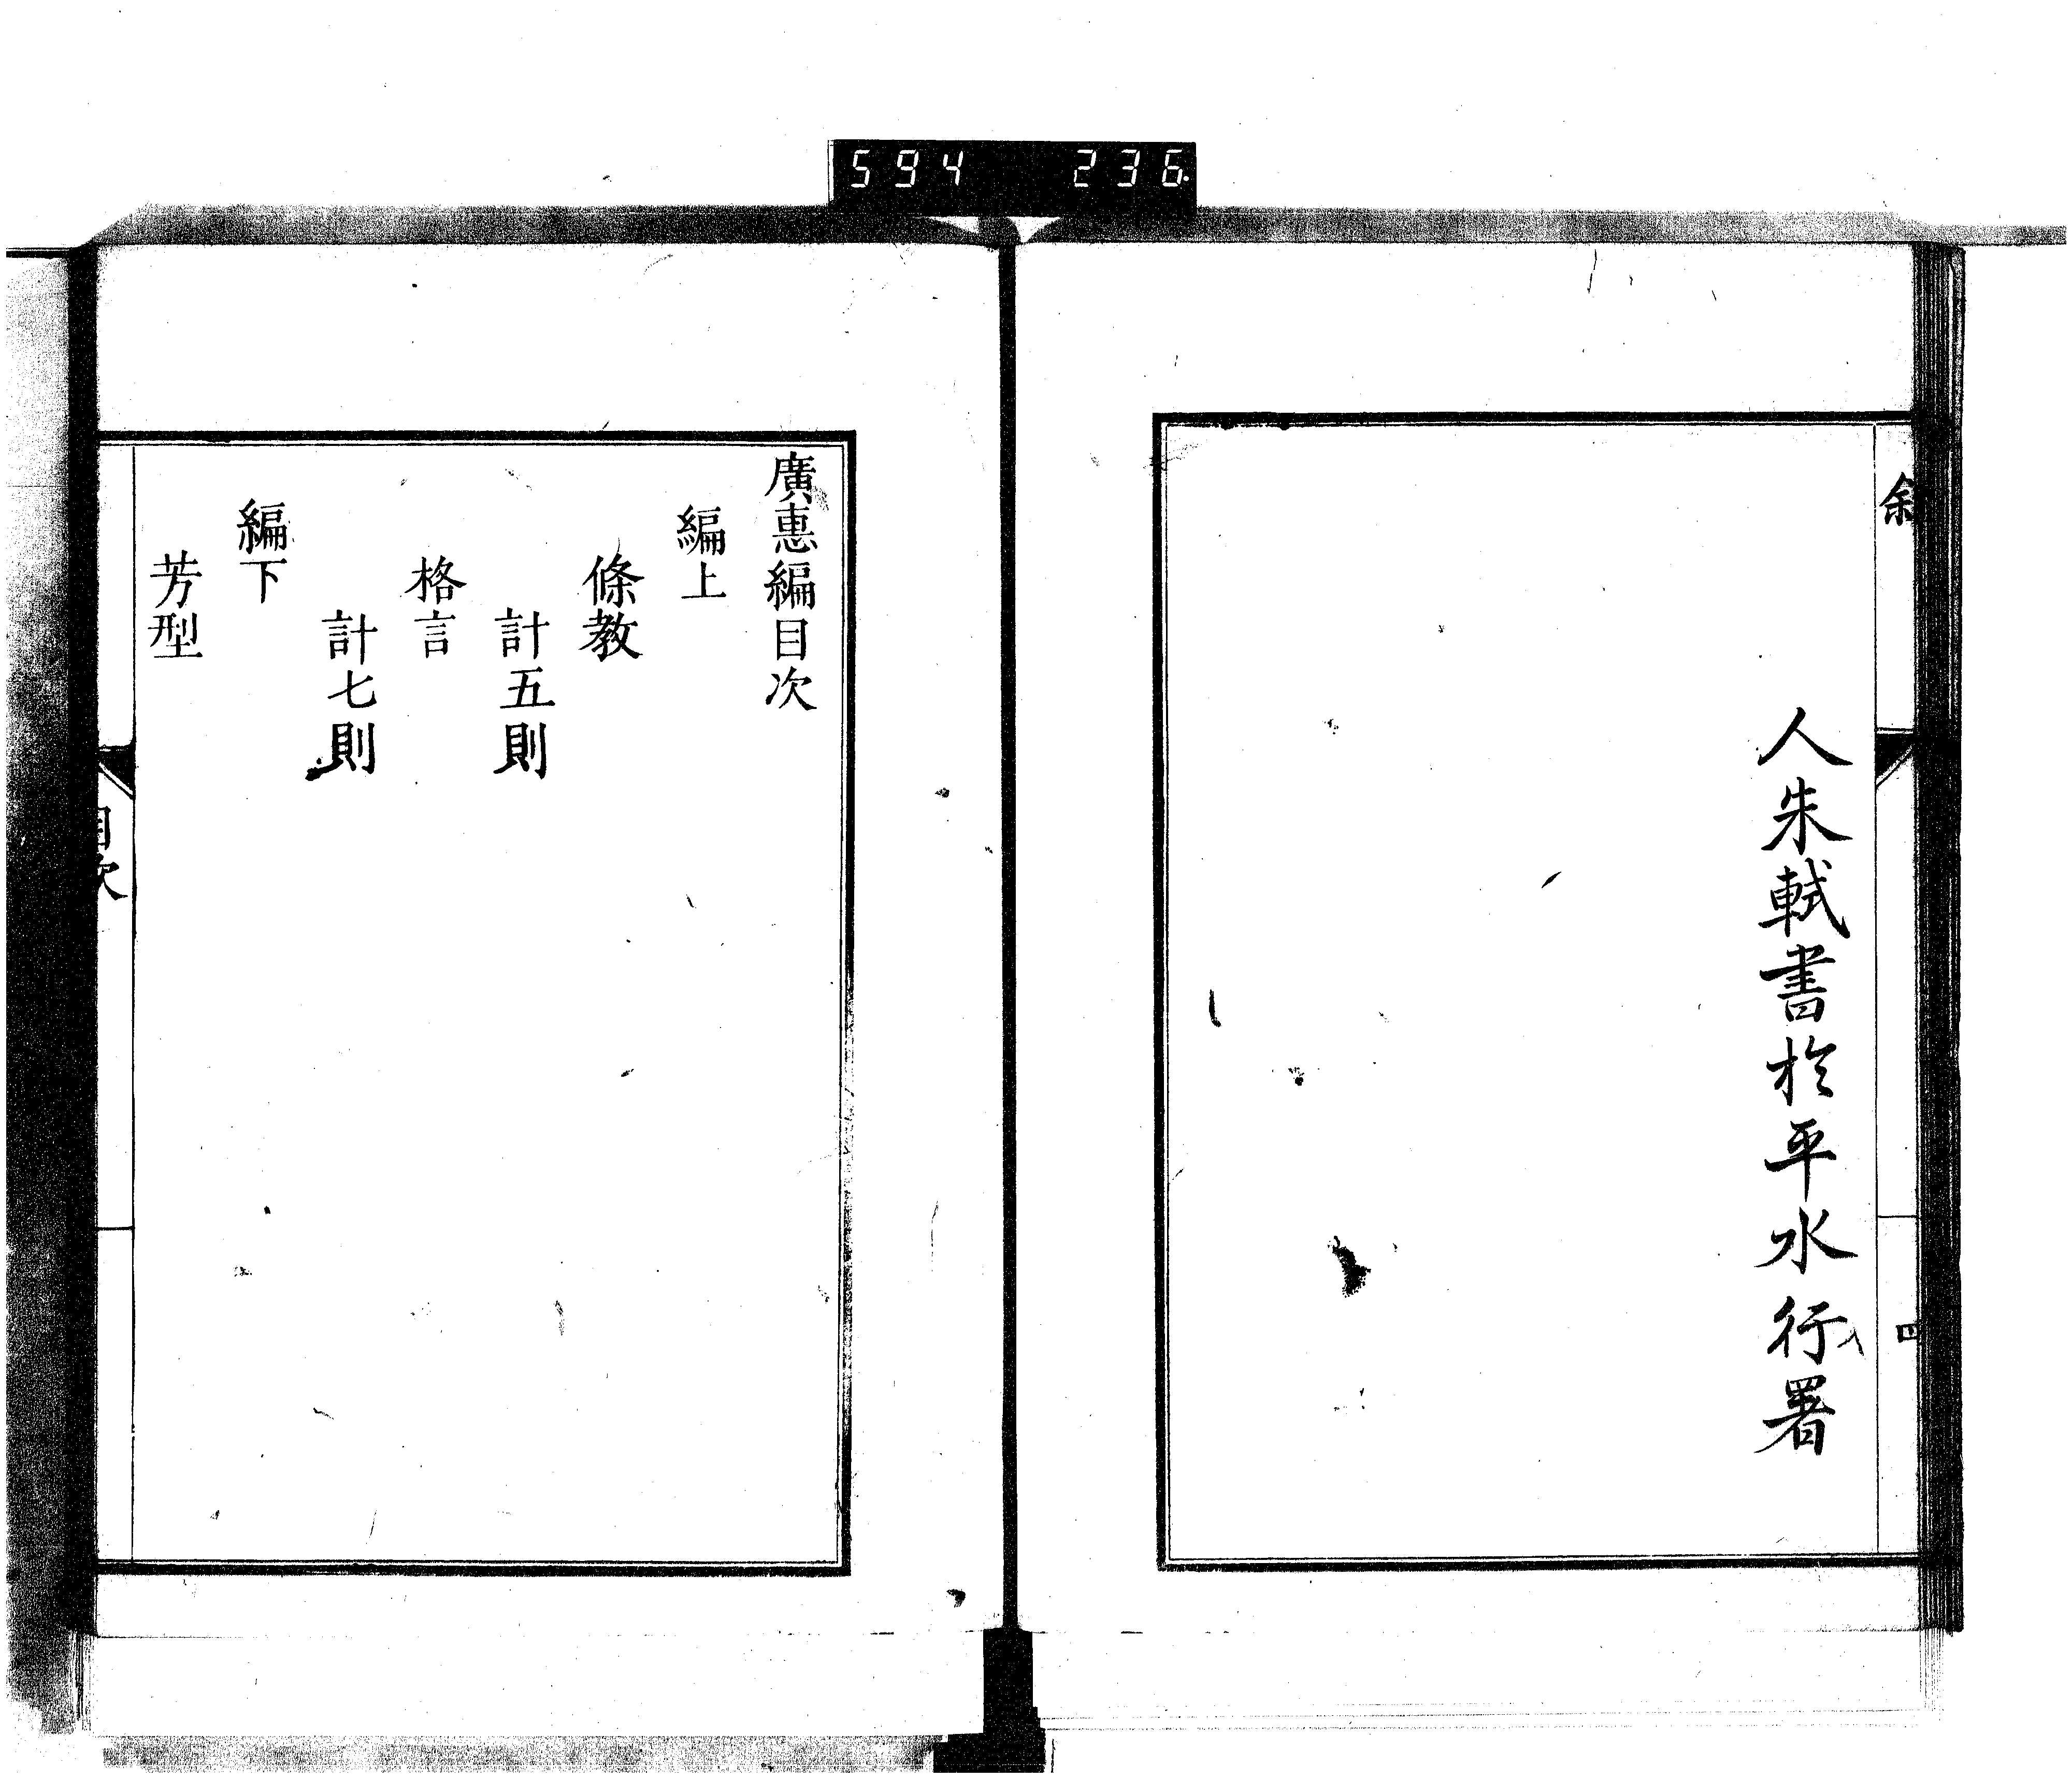 594 236
叙
四
人朱軾書於平水行署
廣惠編目次
編上
條教
計五則
格言
計七則
編下
芳型
目次